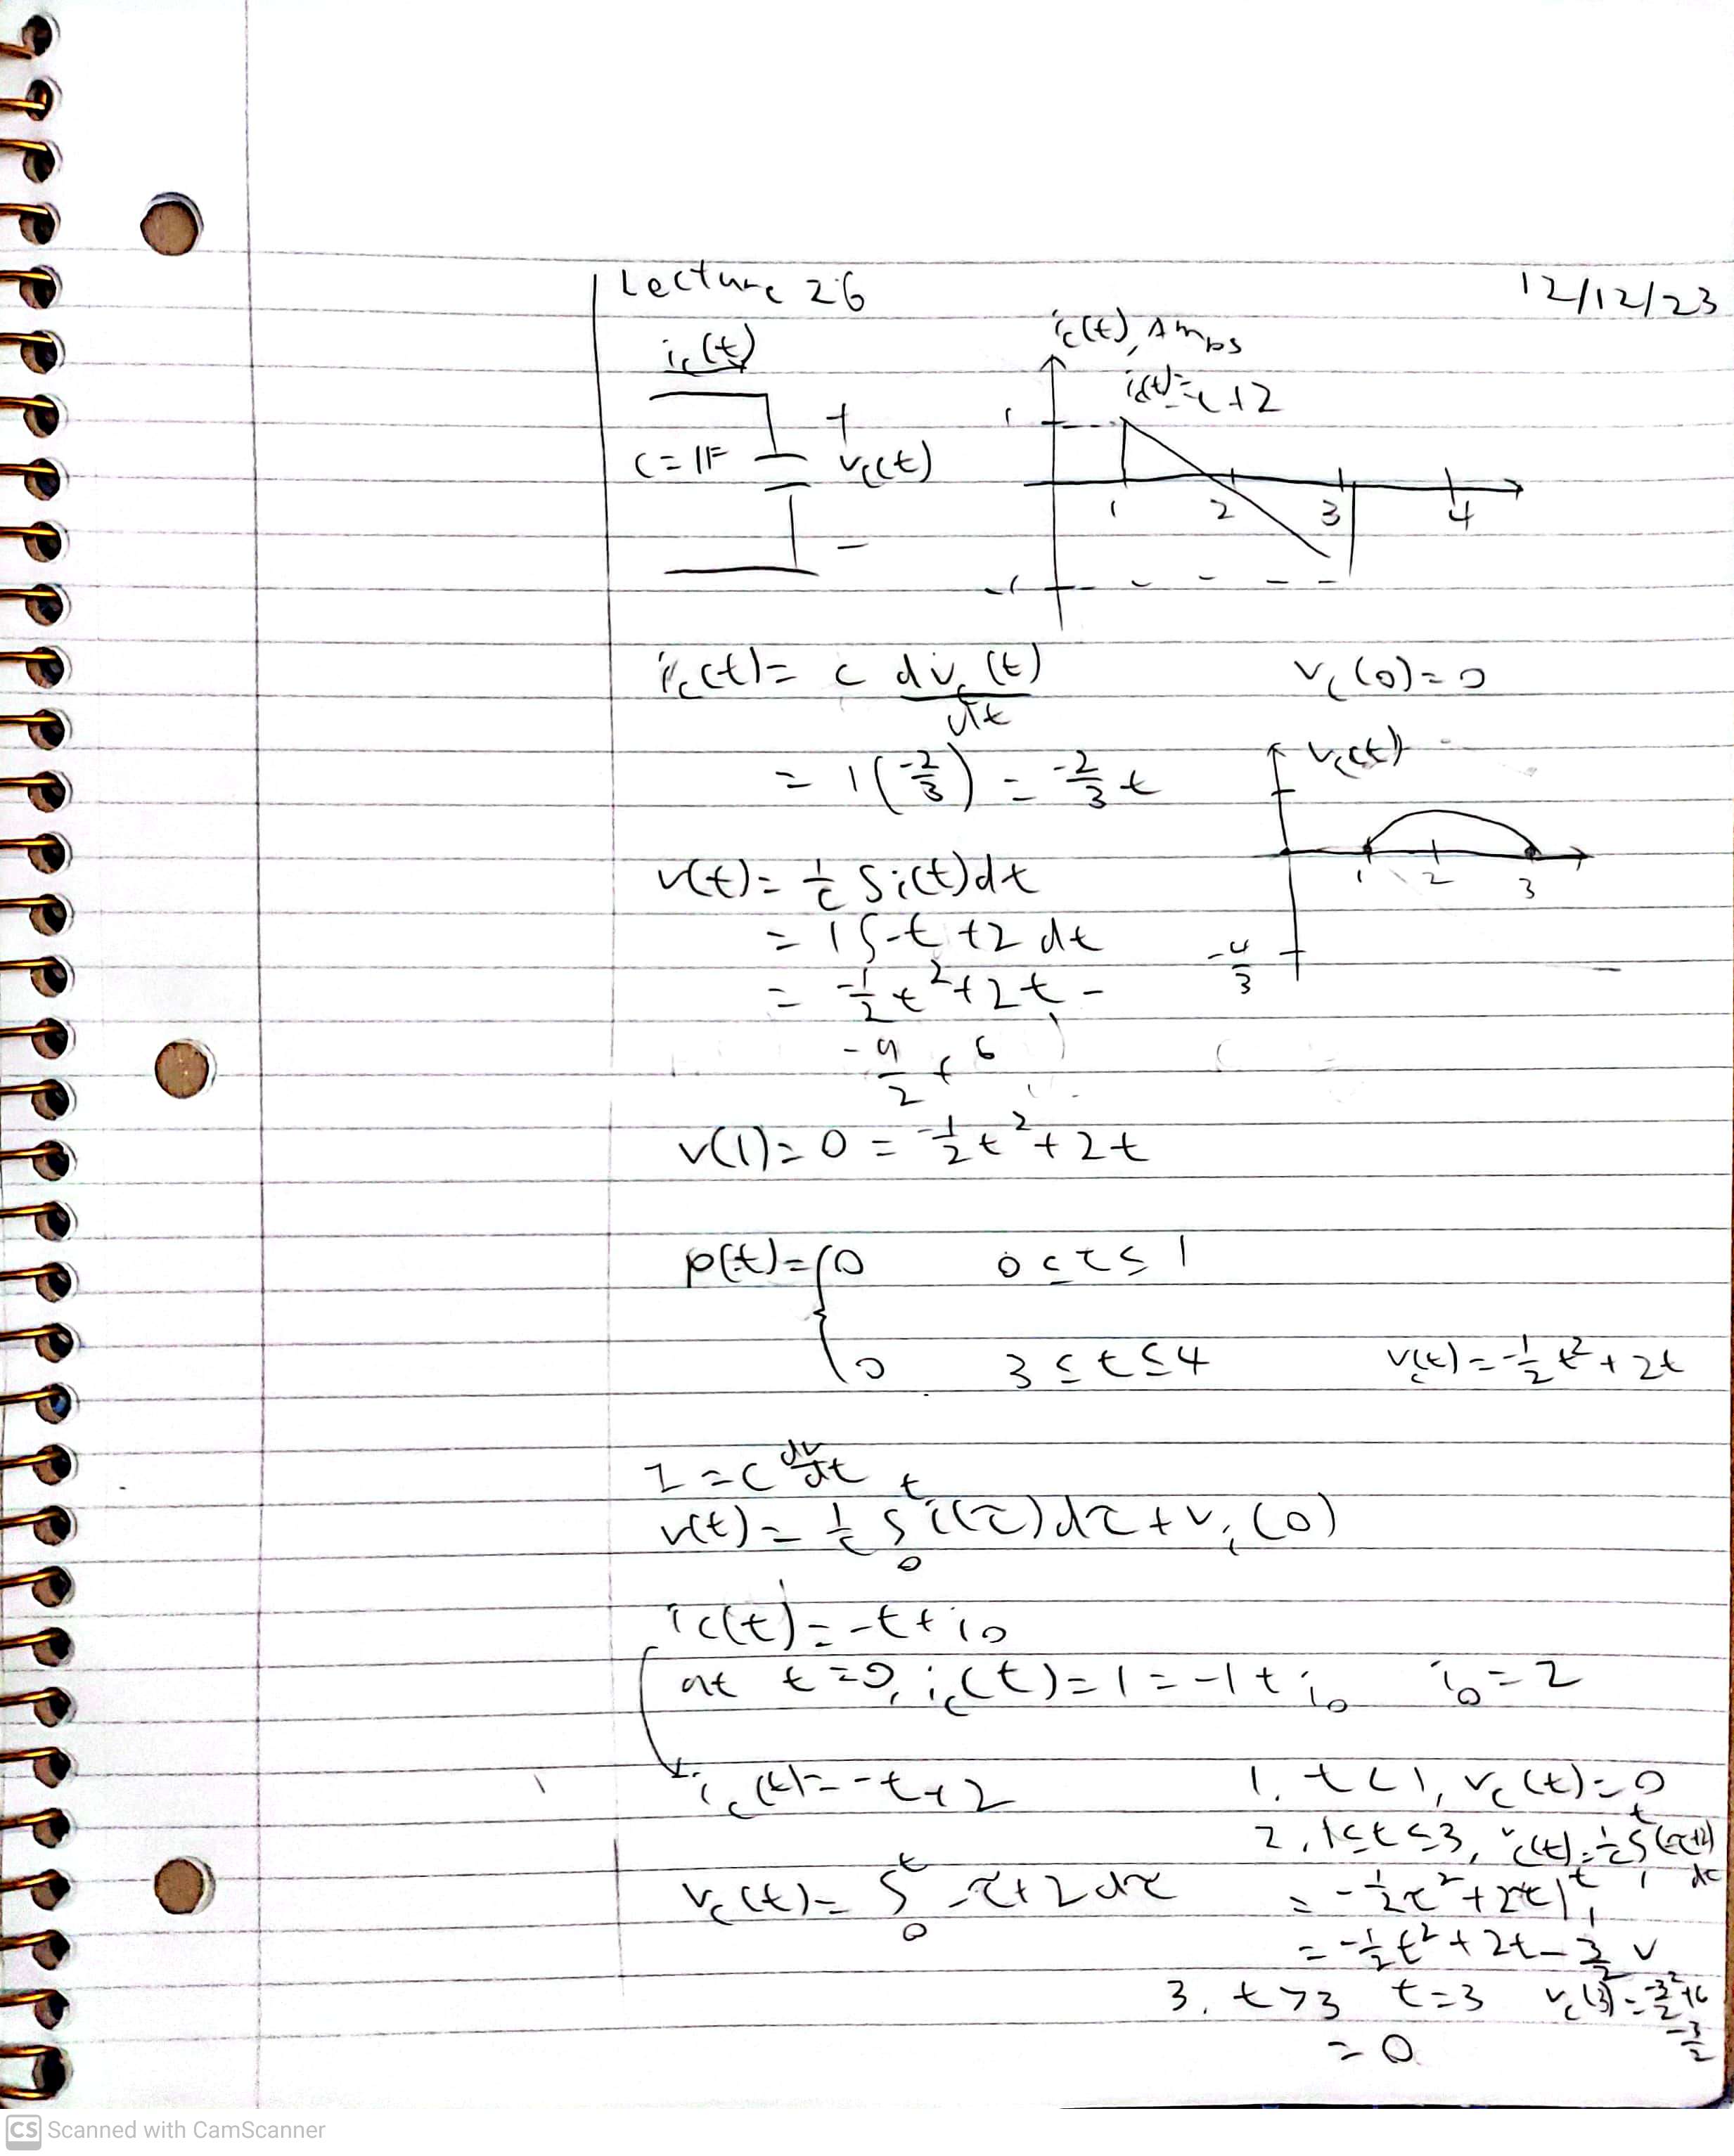 Lecture 26
12/12/23
i_c(t)
C=1F
+
v_c(t)
-
i_c(t), Amps
i_c(t)=-t+2
1
1 2 3 4
-1
i_c(t) = c dv_c(t)/dt
v_c(0)=0
= 1(-2/3) = -2/3 t
v_c(t)
1 2 3
-4/3
v(t) = 1/c ∫i(t)dt
= 1∫-t+2 dt
= -1/2 t²+2t -
-9/2 + 6
v(1)=0 = -1/2 t²+2t
p(t)={0 0≤t≤1
0 3≤t≤4
v_c(t)=-1/2 t²+2t
I=c dv/dt
v(t)= 1/c ∫₀ᵗ i(τ)dτ+v_c(0)
i_c(t)=-t+i₀
at t=0, i_c(t)=1=-1+i₀ i₀=2
i_c(t)=-t+2
v_c(t)= ∫₀ᵗ -τ+2dτ
1. t<1, v_c(t)=0
2. 1≤t≤3, v_c(t)=1/c ∫₁ᵗ(-τ+2)dτ
= -1/2 τ²+2τ|₁ᵗ
= -1/2 t²+2t-3/2 v
3. t>3 t=3 v_c(3)=-3²/2+6-3/2
= 0
CS Scanned with CamScanner